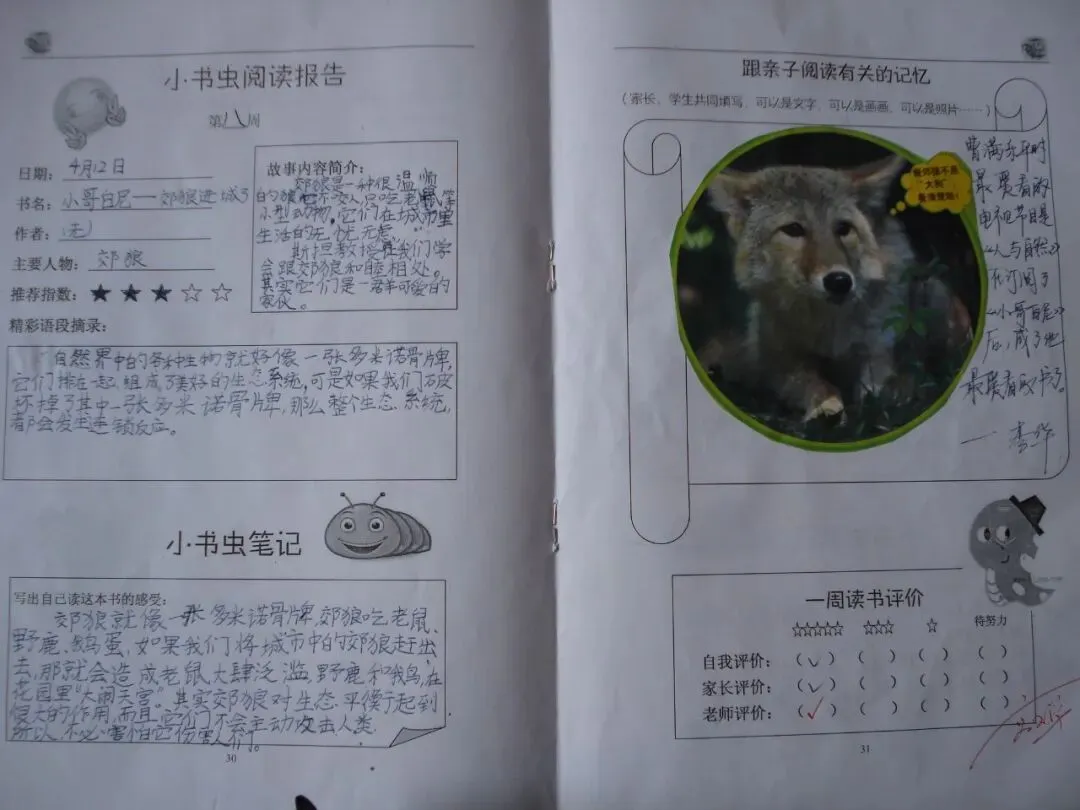 小书虫阅读报告
第八周
日期：4月12日
书名：小哥白尼——郊狼进城了
作者：（无）
主要人物：郊狼
推荐指数：★★★☆☆
故事内容简介：
郊狼是一种很温顺
的狼它不咬人只吃老鼠等
小型动物。它们在城市里
生活的无忧无虑。
斯坦教授让我们学
会跟郊狼和睦相处。
其实它们是一群可爱的
家伙。
精彩语段摘录：
自然界中的各种生物就好像一张多米诺骨牌，
它们排在一起，组成了美好的生态系统，可是如果我们破
坏掉了其中一张多米诺骨牌，那么整个生态系统，
都会发生连锁反应。
小书虫笔记
写出自己读这本书的感受：
郊狼就像一张多米诺骨牌，郊狼吃老鼠、
野鹿、鹅蛋，如果我们将城市中的郊狼赶出
去，那就会造成老鼠大肆泛滥，野鹿和鹅鸟，在
花园里“大闹天宫”。其实郊狼对生态平衡行起到
很大的作用，而且它们不会主动攻击人类，
所以，不必害怕它伤害人们。
30
跟亲子阅读有关的记忆
（家长、学生共同填写，可以是文字，可以是画画，可以是照片……）
郊狼强不是
“大狗”
曹满乐平时
最爱看的
电视节目是
《人与自然》
我们订阅了
《小哥白尼》
后，成了他
最爱看的书了。
一周读书评价
☆☆☆☆☆ ☆☆☆ ☆ 待努力
自我评价：（✓）（ ）（ ）（ ）
家长评价：（✓）（ ）（ ）（ ）
老师评价：（✓）（ ）（ ）（ ）
31